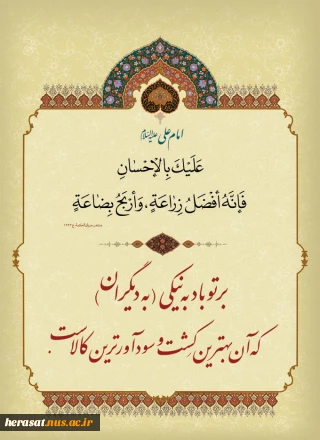 امام علی علیه‌السلام
عَلَيْكَ بِالْإِحْسٰانِ
فَإِنَّهُ أَفْضَلُ زِرٰاعَةٍ، وَأَرْبَحُ بِضٰاعَةٍ
بر تو باد به نیکی (به دیگران)
که آن بهترین کِشت و سودآورترین کالاست.
herasat.nus.ac.ir